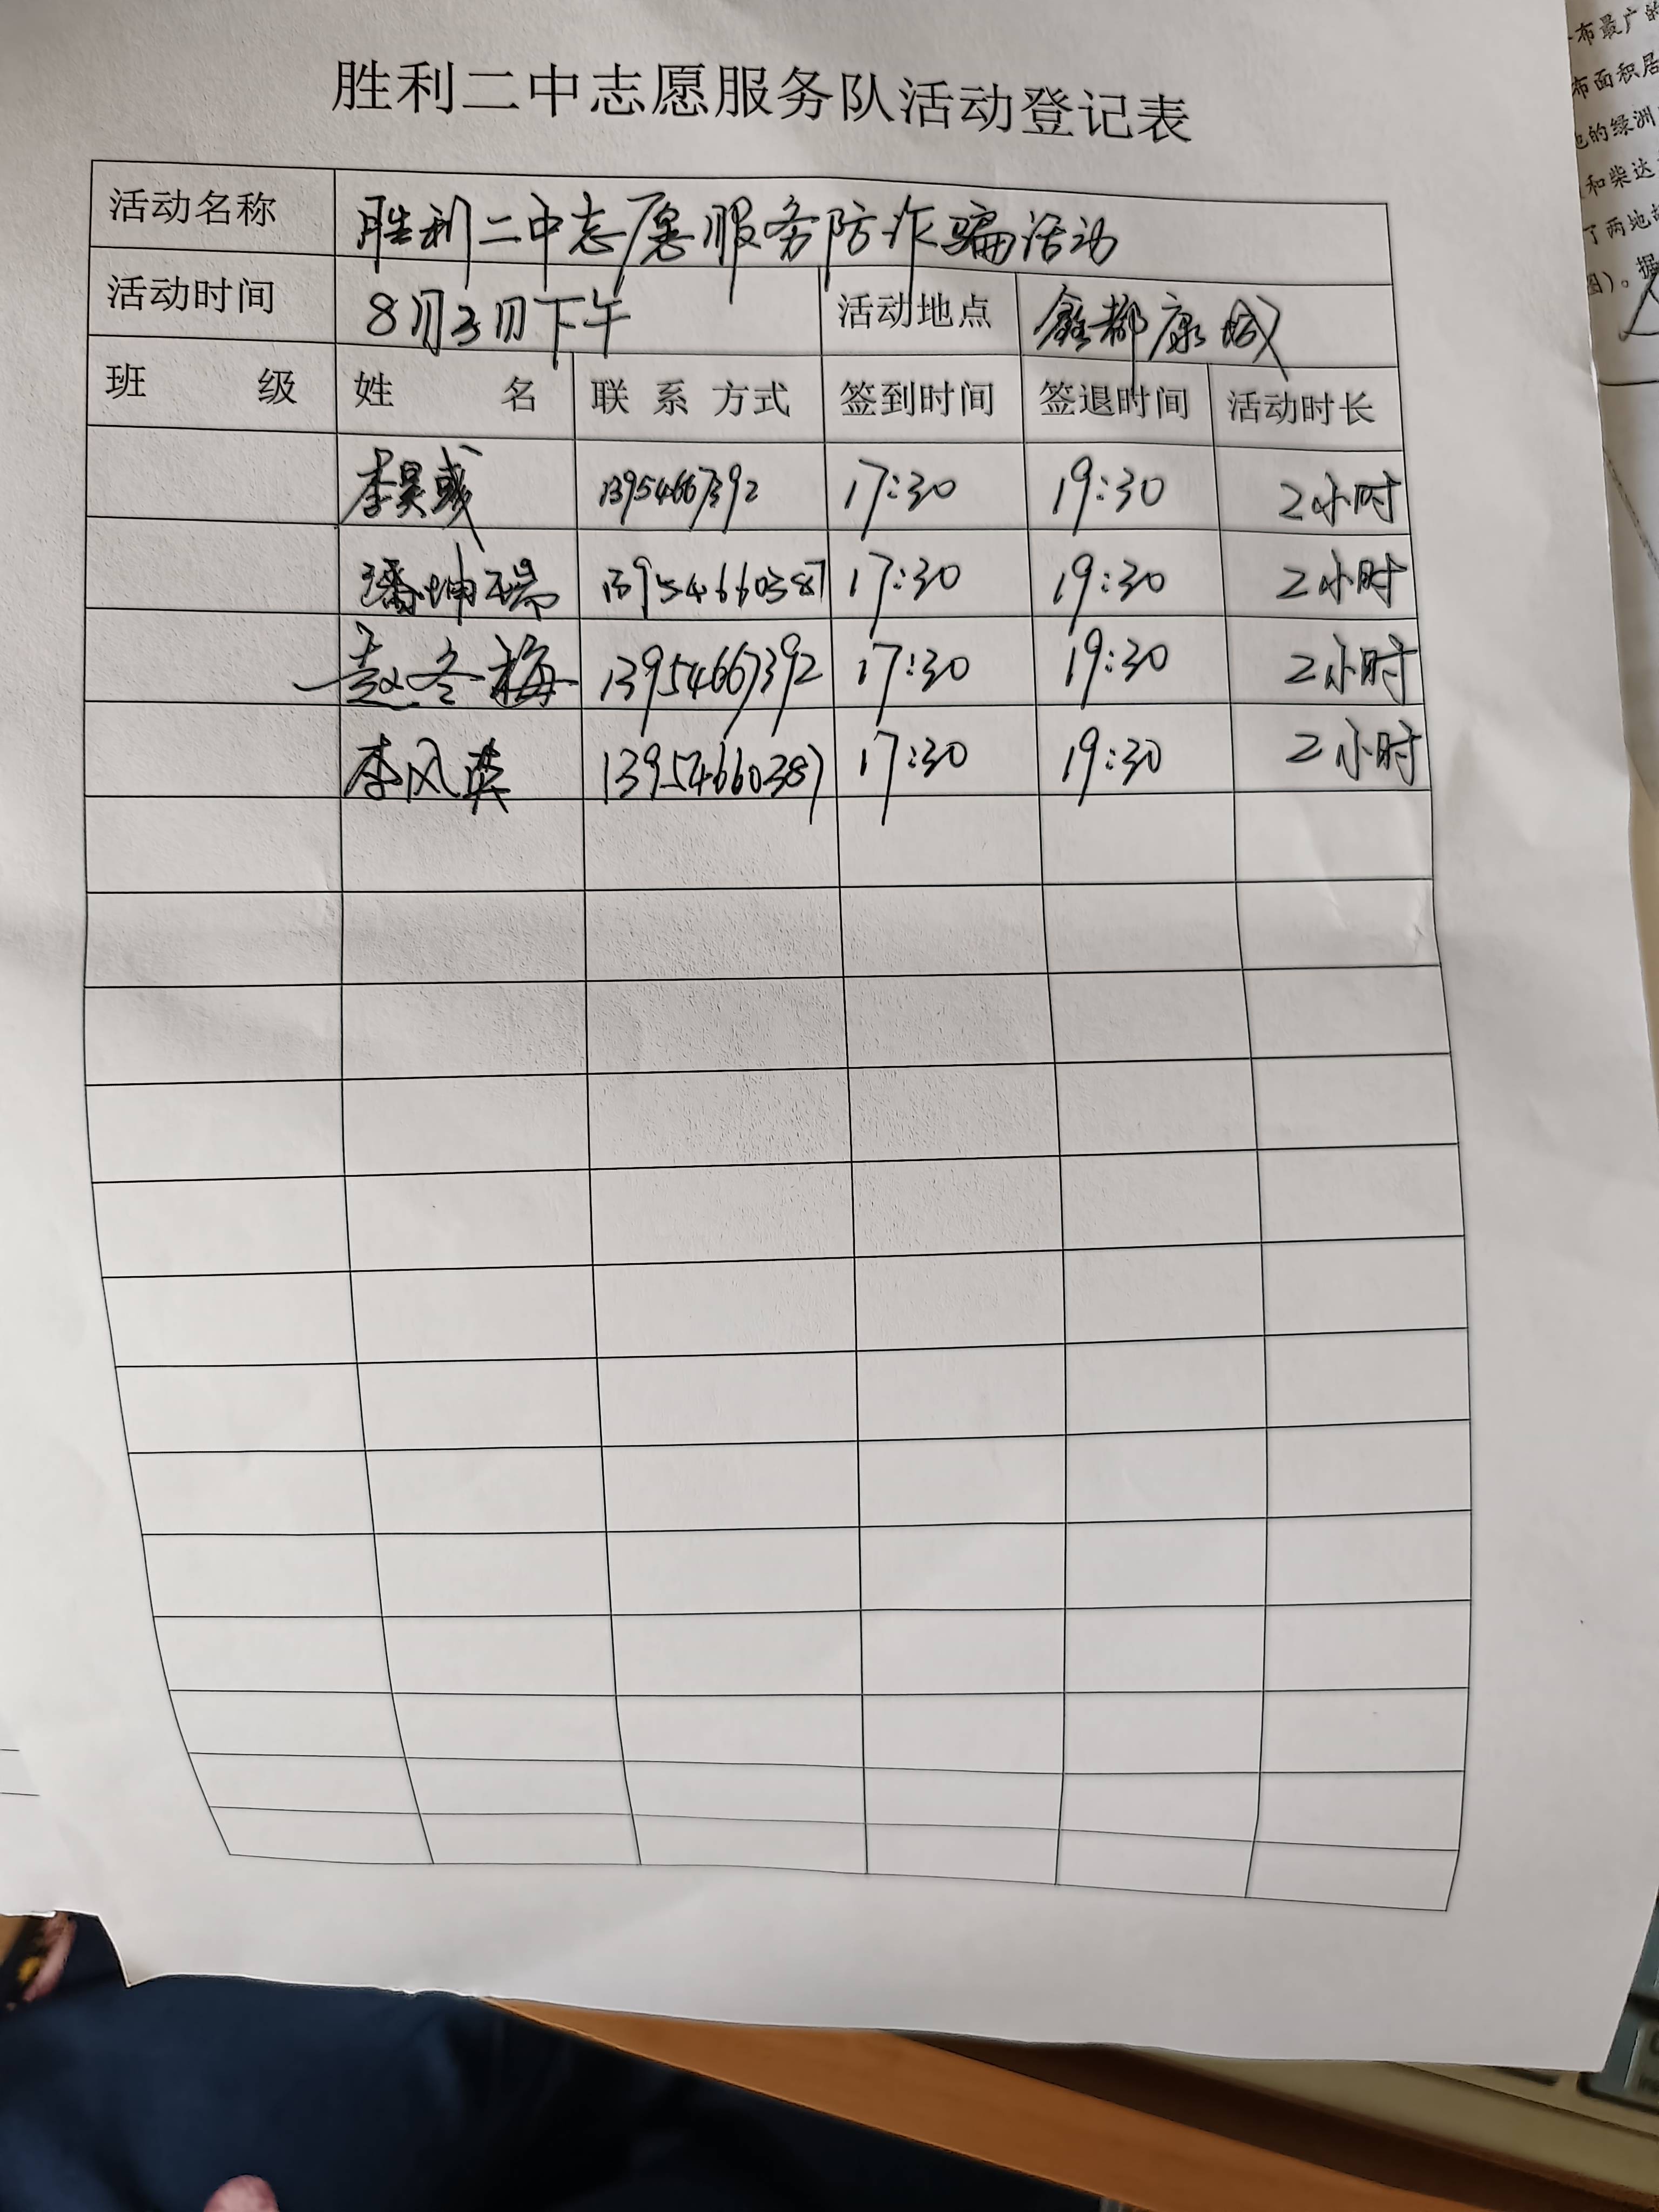 胜利二中志愿服务队活动登记表
活动名称 胜利二中志愿服务防诈骗活动
活动时间 8月3日下午 活动地点 鑫都康城
班 级 姓 名 联 系 方式 签到时间 签退时间 活动时长
李昊彧 13954667392 17:30 19:30 2小时
潘坤瑞 13954660387 17:30 19:30 2小时
赵冬梅 13954667392 17:30 19:30 2小时
李风英 13954660387 17:30 19:30 2小时
布最广的
布面积居
的绿洲
和柴达
了两地
图)。据